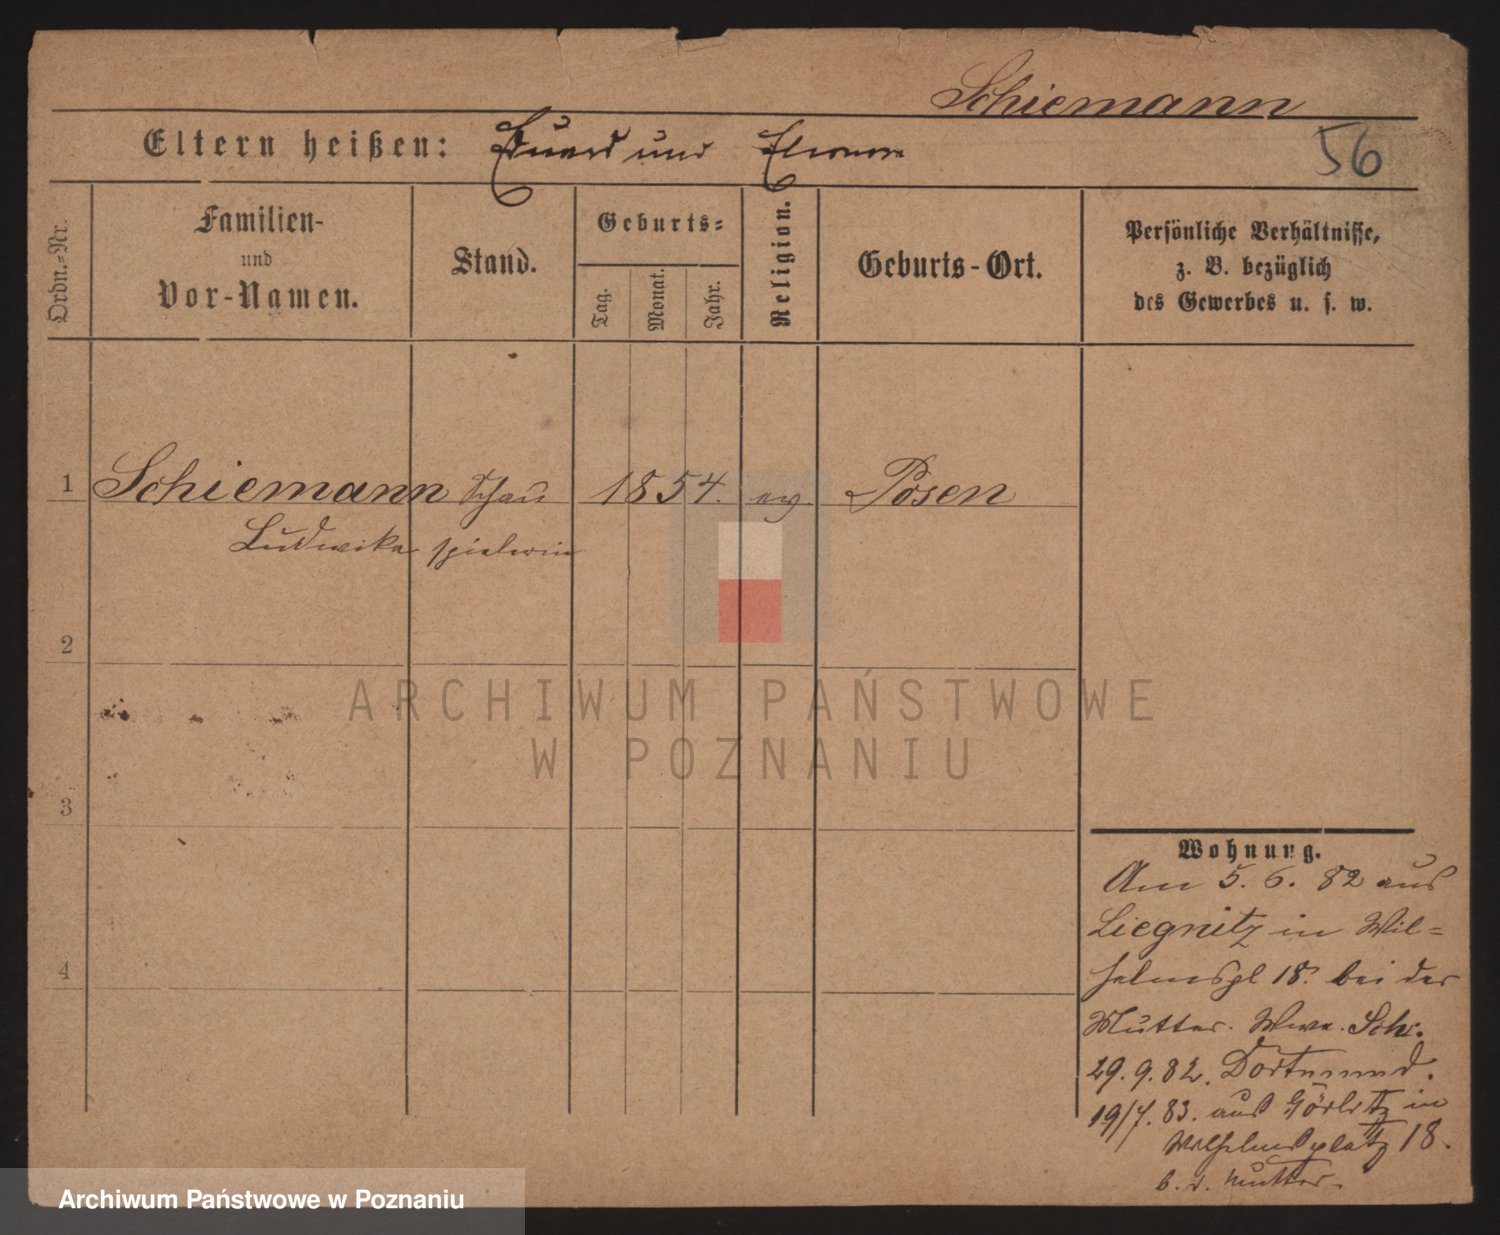 Schiemann
Eltern heißen: Eduard und Eleonore
56
Ordn.-Nr.
Familien-
und
Vor-Namen.
Stand.
Geburts-
Tag.
Monat.
Jahr.
Religion.
Geburts-Ort.
Persönliche Verhältnisse,
z. B. bezüglich
des Gewerbes u. s. w.
1 Schiemann Schau 1854. ev Posen
Ludwika spielerin
2
ARCHIWUM PAŃSTWOWE
W POZNANIU
3
4
Wohnung.
Am 5. 6. 82 aus
Liegnitz in Wil-
helmspl 18. bei der
Mutter. Wwe. Sch.
29. 9. 82. Dortmund.
19/7. 83. aus Görlitz in
Wilhelmsplatz 18.
b. d. Mutter.
Archiwum Państwowe w Poznaniu